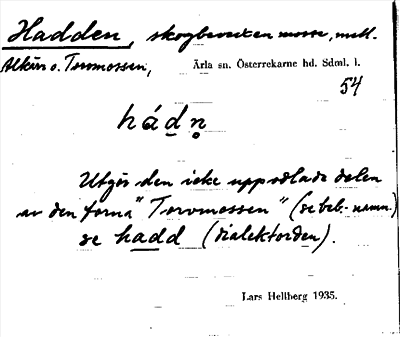 Hadden, skogbevuxen mosse, mell.
Alkärr o. Torvmossen,
Ärla sn. Österrekarne hd. Sdml. l.
54
hádn̥
Utgör den icke uppodlade delen
av den forna "Torvmossen" (se beb.-namn)
se hadd (dialektorden).
Lars Hellberg 1935.